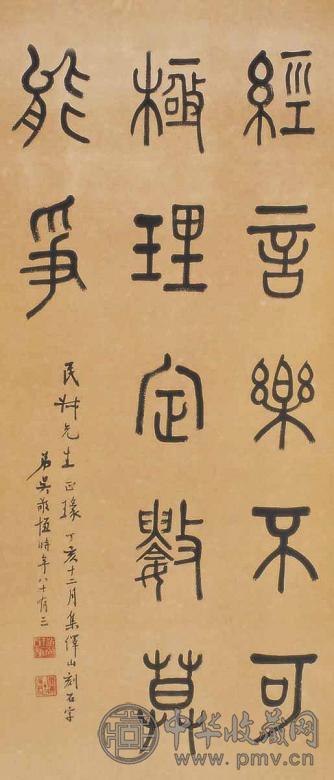 經言樂不可
極理定數莫
能爭
民叔先生正篆 丁亥十二月集繹山刻石字
弟吳敬恆時年八十有三
中华收藏网
www.pmv.cn